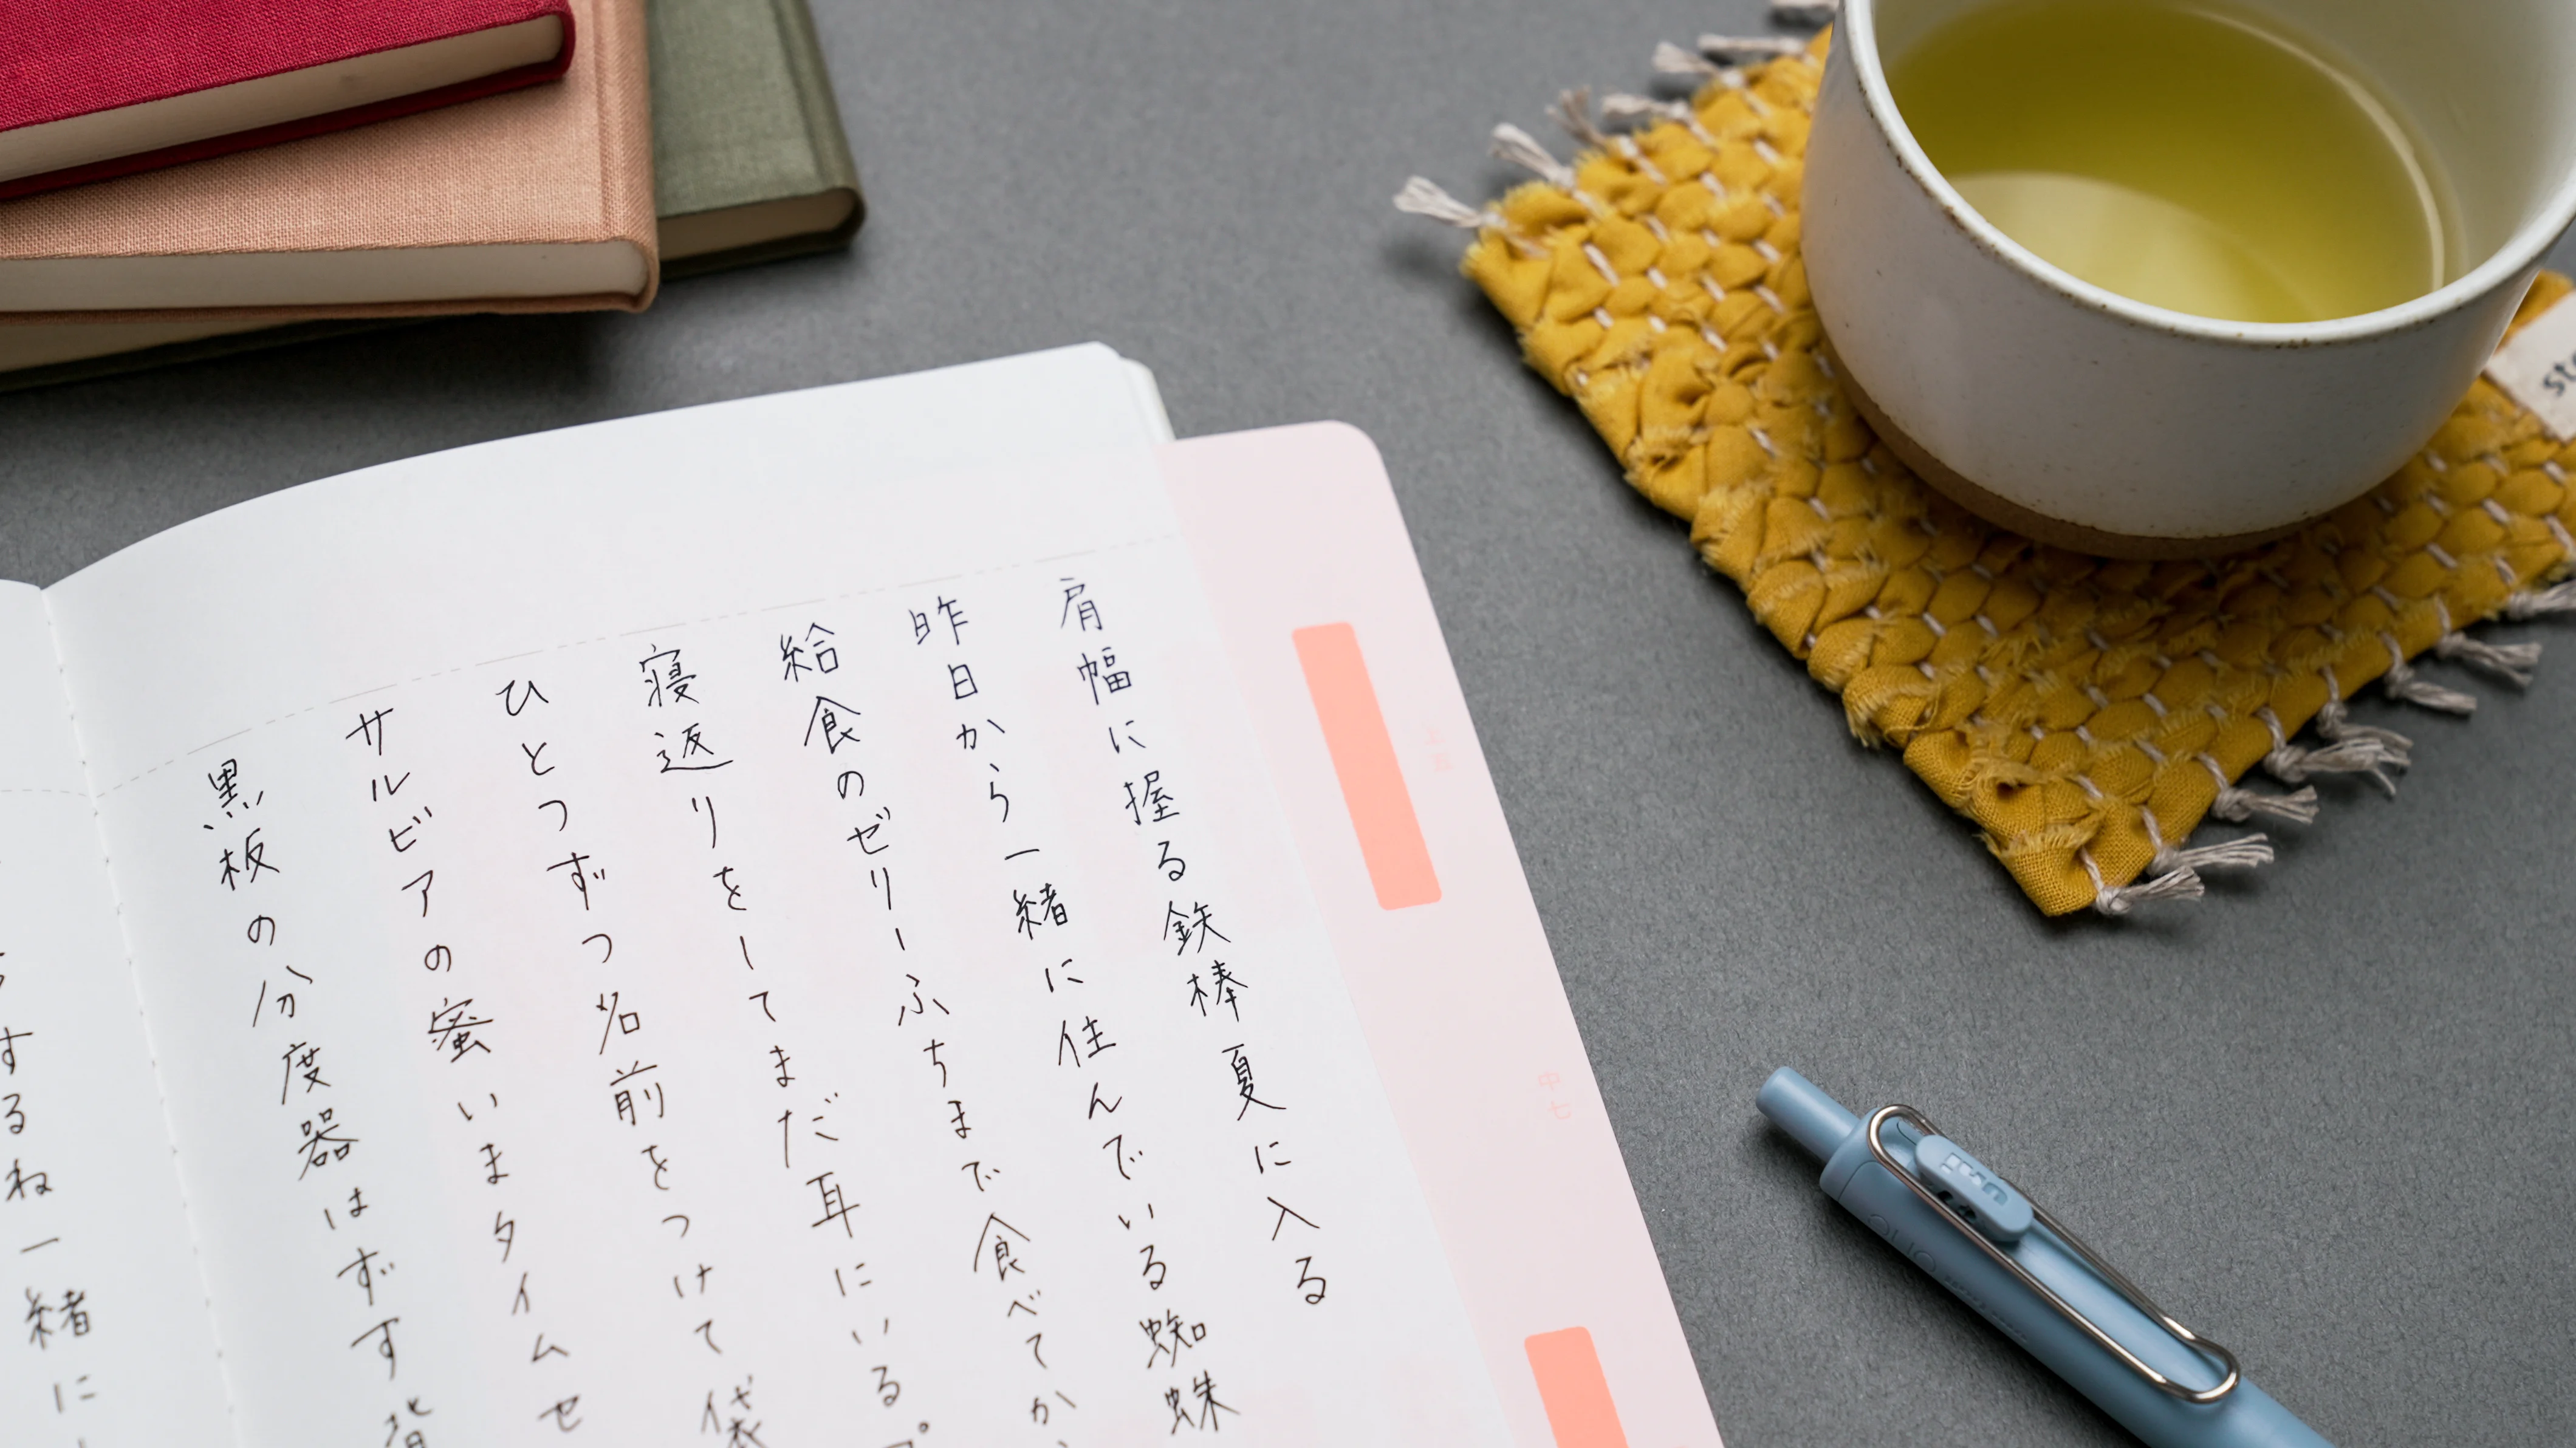 肩幅に握る鉄棒夏に入る
昨日から一緒に住んでいる蜘蛛
給食のゼリーふちまで食べてか
寝返りをしてまだ耳にいる。
ひとつずつ名前をつけて袋
サルビアの蜜いまタイムセ
黒板の分度器はずす背
するね一緒に
中七
uni